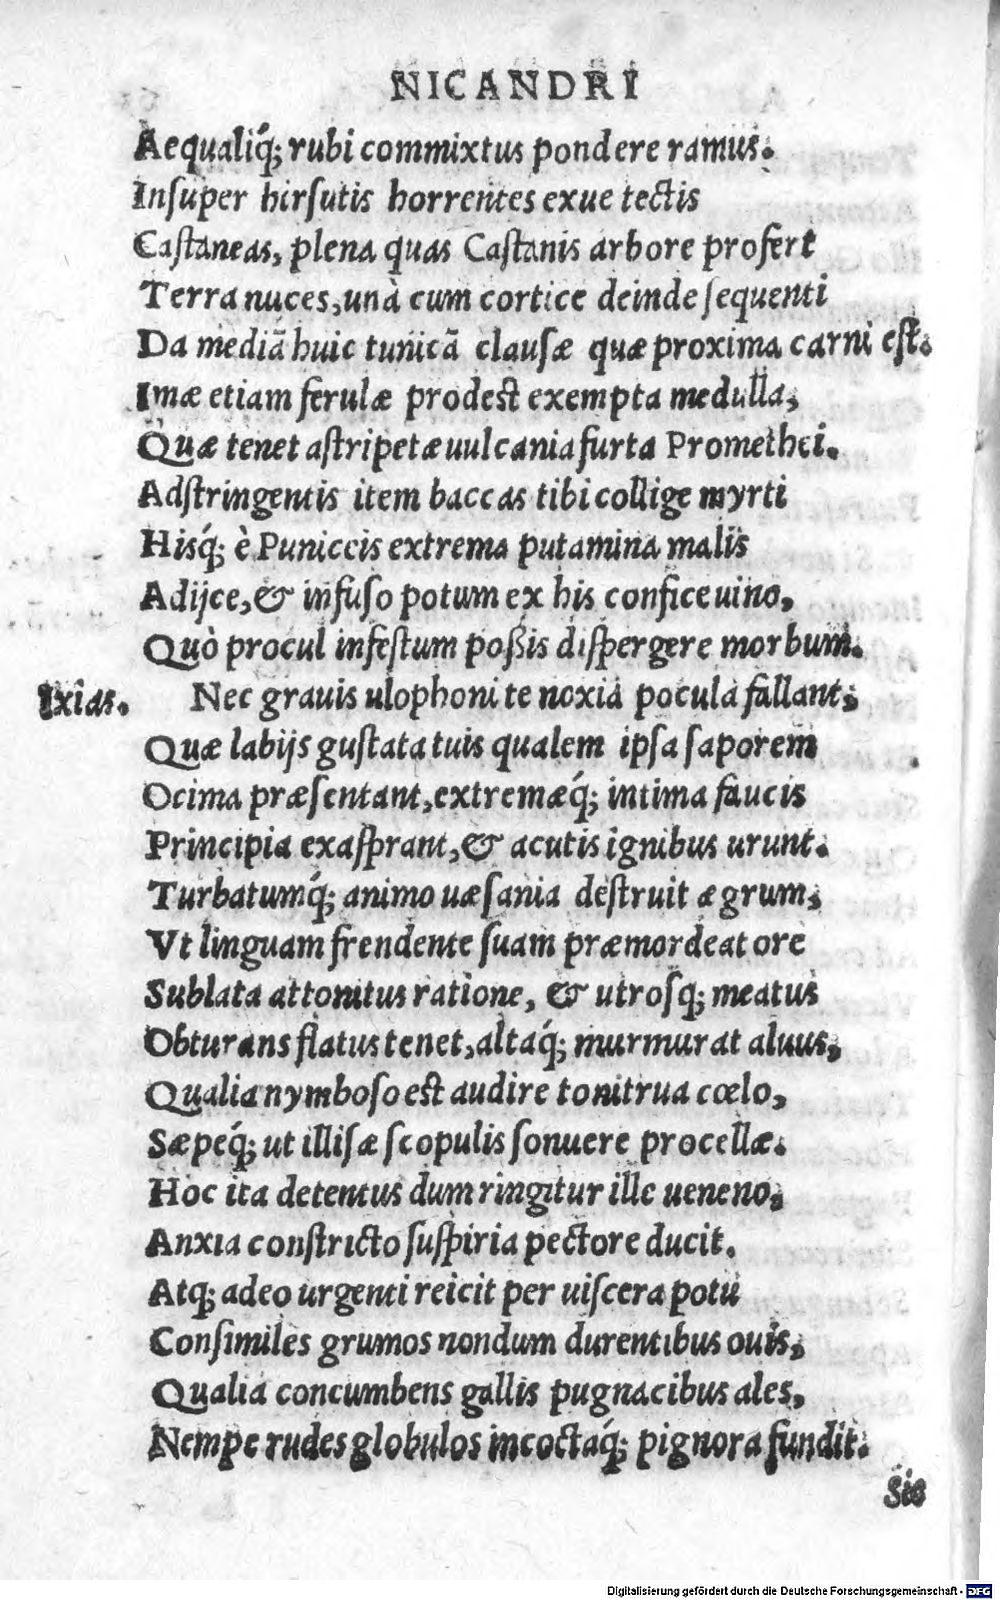 NICANDRI
Aequaliq́; rubi commixtus pondere ramus.
Inſuper hirſutis horrentes exue tectis
Caſtaneas, plena quas Caſtanis arbore profert
Terra nuces, unà cum cortice deinde ſequenti
Da mediã huic tunicã clauſæ quæ proxima carni eſt.
Imæ etiam ferulæ prodest exempta medulla,
Quæ tenet aſtripetæ uulcania furta Promethei.
Adſtringentis item baccas tibi collige myrti
Hisq́; è Puniceis extrema putamina malis
Adijce, & infuſo potum ex his confice uino,
Quò procul infeſtum poßis diſpergere morbum.
Ixias. Nec grauis ulophoni te noxia pocula fallant,
Quæ labijs guſtata tuis qualem ipſa ſaporem
Ocima præſentant, extremæq́; intima faucis
Principia exaſprant, & acutis ignibus urunt.
Turbatumq́; animo uæſania deſtruit ægrum,
Vt linguam frendente ſuam præmordeat ore
Sublata attonitus ratione, & utroſq; meatus
Obturans flatus tenet, altaq́; murmurat aluus,
Qualia nymboſo est audire tonitrua cœlo,
Sæpeq́; ut illiſæ ſcopulis ſonuere procellæ.
Hoc ita detentus dum ringitur ille ueneno,
Anxia conſtricto ſuſpiria pectore ducit.
Atq; adeo urgenti reicit per uiſcera potu
Conſimiles grumos nondum durentibus ouis,
Qualia concumbens gallis pugnacibus ales,
Nempe rudes globulos incoctaq́; pignora fundit.
Sic
Digitalisierung gefördert durch die Deutsche Forschungsgemeinschaft - DFG